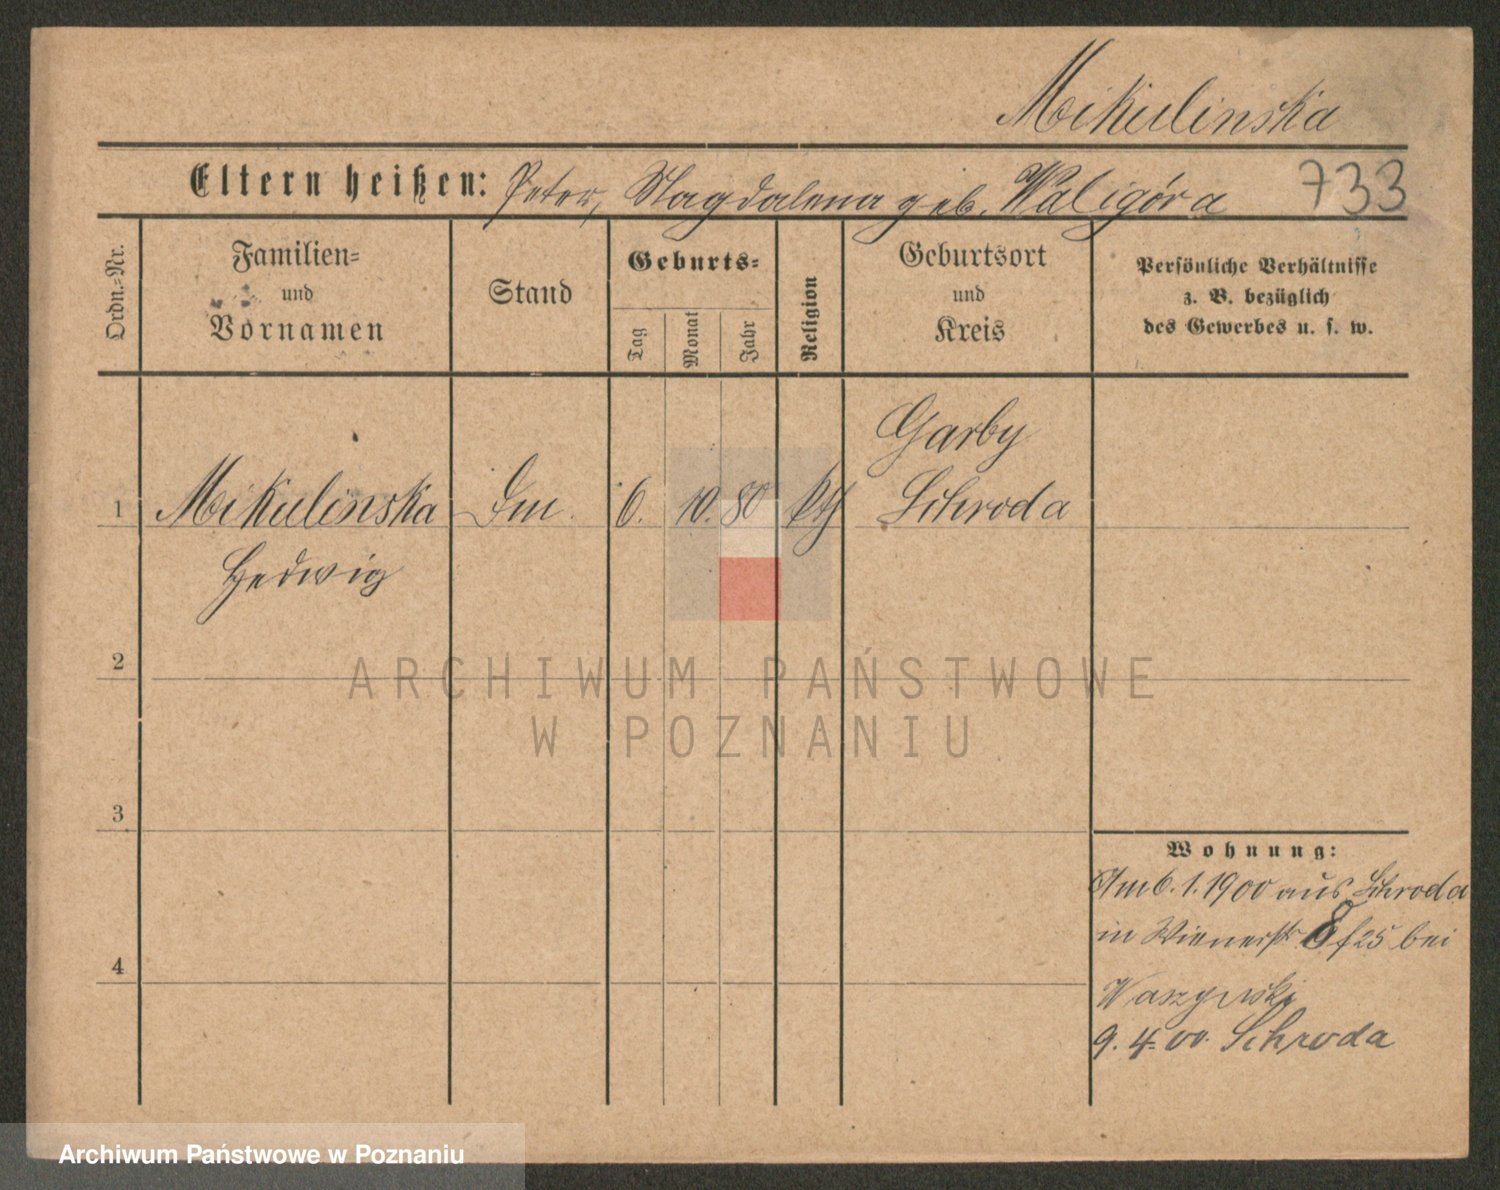 Mikulinska
Eltern heißen: Peter, Magdalena geb. Waligóra
733
Ordn.-Nr.
Familien-
und
Vornamen
Stand
Geburts-
Tag
Monat
Jahr
Religion
Geburtsort
und
Kreis
Persönliche Verhältnisse
z. B. bezüglich
des Gewerbes u. s. w.
Garby
1 Mikulinska 6. 10. 80 kth Schroda
Hedwig
2
ARCHIWUM PAŃSTWOWE
W POZNANIU
3
Wohnung:
Am 6. 1. 1900 aus Schroda
in Wienerstr 8 f 25 bei
4
9. 4. 00. Schroda
Archiwum Państwowe w Poznaniu